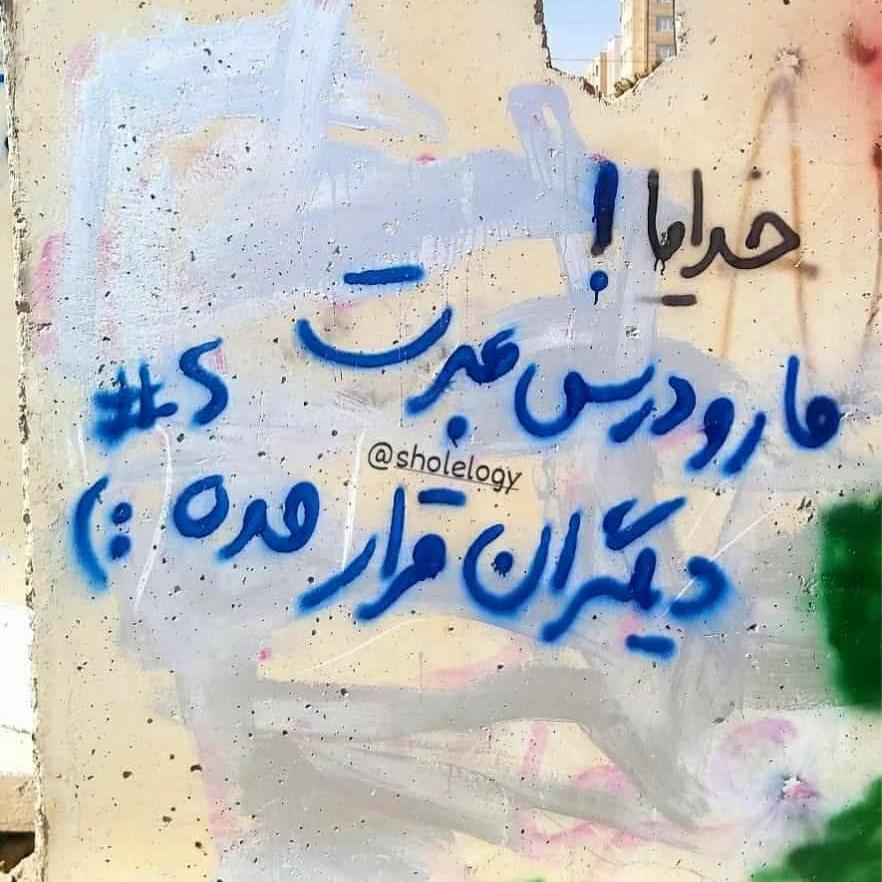 خدایا!
ما رو درس عبرت
@sholelogy
دیگران قرار مده :)